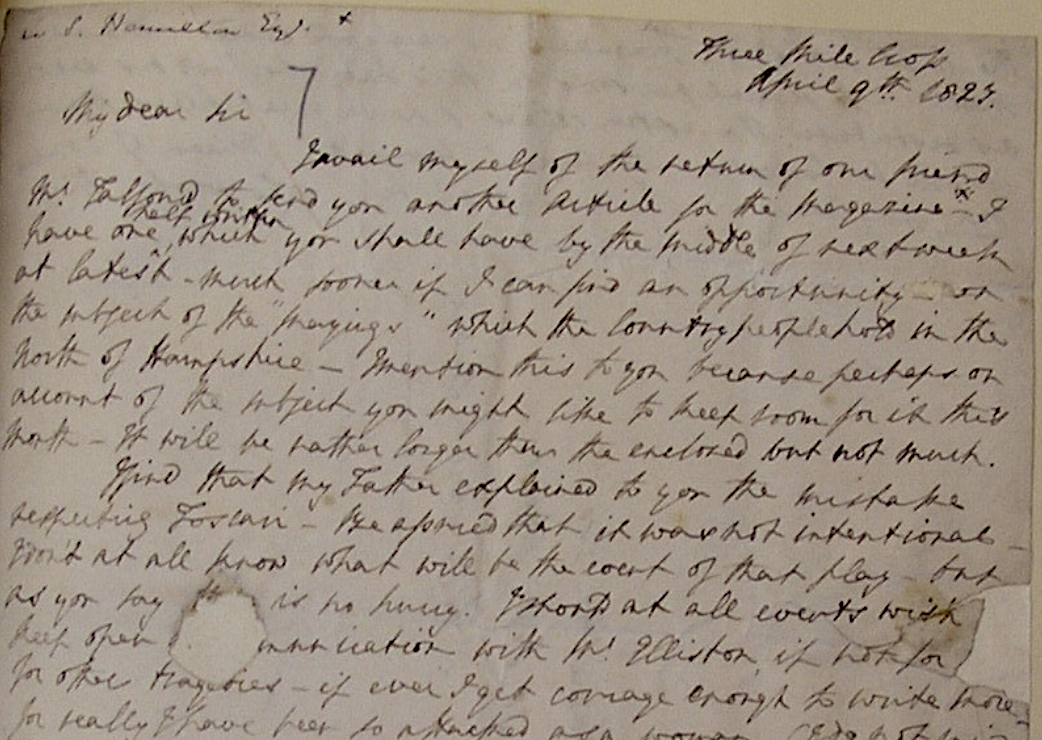 S. Hamilton Esq. x
Three Mile Cross
April 9th 1823.
7
My dear Sir
I avail myself of the return of our friend
Mr. Talfourd to send you another Article for the Magazine x – I
half written
have one which you shall have by the middle of next week
at latest – much sooner if I can find an opportunity – on
the subject of the "Mayings" which the Country people hold in the
North of Hampshire – I mention this to you because perhaps on
account of the subject you might like to keep room for it this
Month – It will be rather longer than the enclosed but not much.
I find that my Father explained to you the mistake
respecting Foscari – Be assured that it was not intentional –
I don't at all know what will be the event of that play – but
as you say is no hurry. I should at all events wish
keep open munication with Mr. Elliston, if not for
for other tragedies – if ever I get courage enough to write more –
for really I have been so attacked as a woman